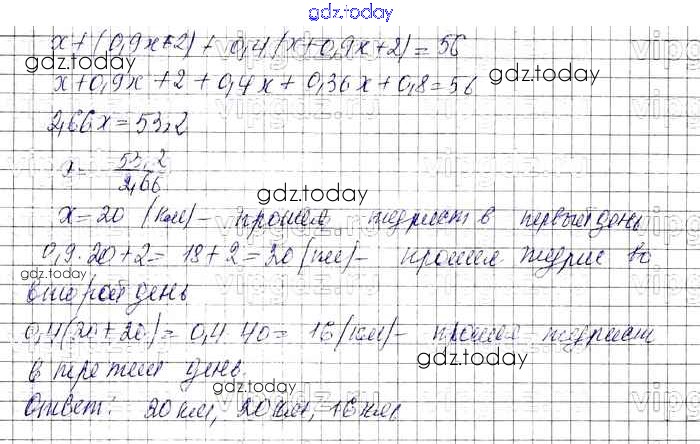 gdz.today
x + (0,9x+2) + 0,4(x+0,9x+2) = 56
gdz.today
x+0,9x+2+0,4x+0,36x+0,8=56
gdz.today
2,66x = 53,2
x = 53,2 / 2,66
gdz.today
x = 20 (км) - прошел турист в первый день
0,9·20+2 = 18+2=20 (км) - прошел во
gdz.today
второй день
0,4(20+20) = 0,4·40 = 16 (км) - прошел
gdz.today
в третий день.
gdz.today
Ответ: 20 км, 20 км, 16 км.